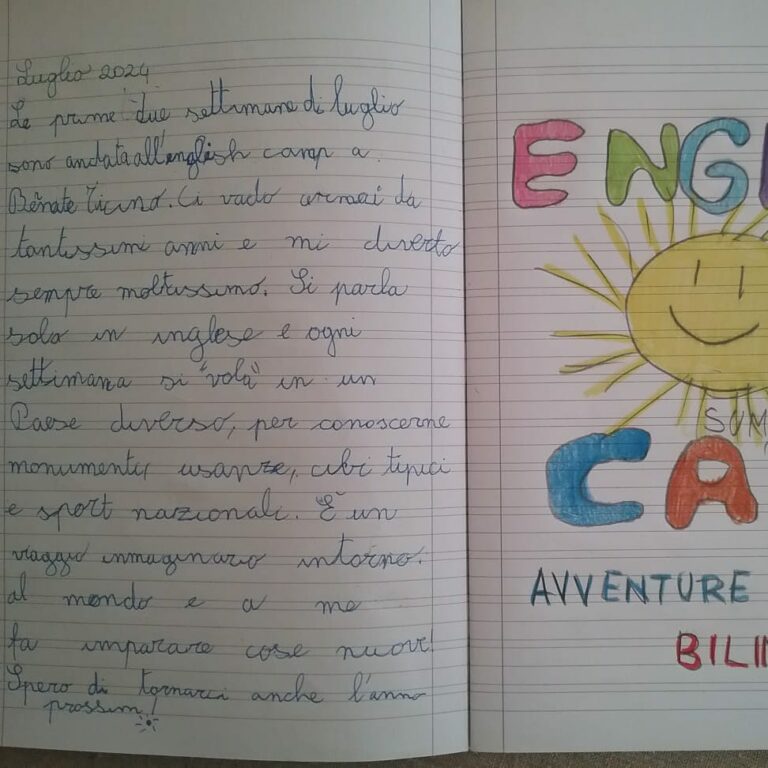 Luglio 2024
Le prime due settimane di luglio
sono andata all'english camp a
Renate Ticino. Ci vado ormai da
tantissimi anni e mi diverto
sempre moltissimo. Si parla
solo in inglese e ogni
settimana si "vola" in un
Paese diverso, per conoscerne
monumenti, usanze, cibi tipici
e sport nazionali. È un
viaggio immaginario intorno
al mondo e a me
fa imparare cose nuove!
Spero di tornarci anche l'anno
prossimo!
ENGL
SUM
CA
AVVENTURE
BILIN